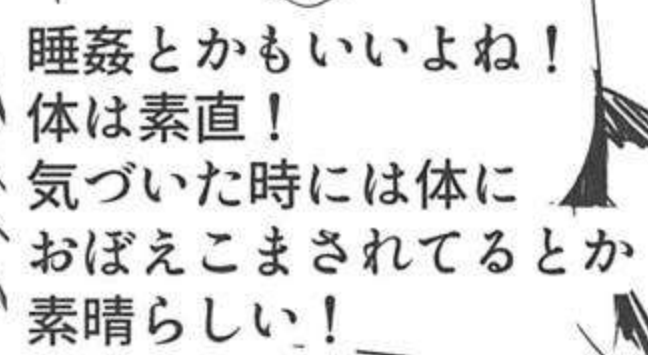 睡姦とかもいいよね！
体は素直！
気づいた時には体に
おぼえこまされてるとか
素晴らしい！